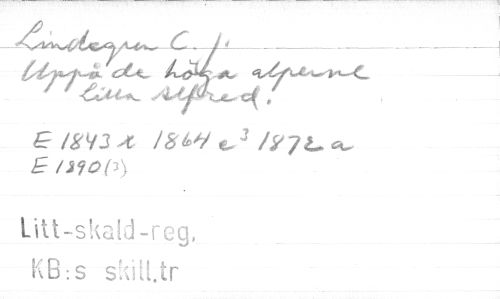 Lindegren C. J.
Uppå de höga alperne
Lilla Alfred.
E 1843 x 1864 c3 1872 a
E 1890 (3)
Litt-skald-reg.
KB:s skill.tr